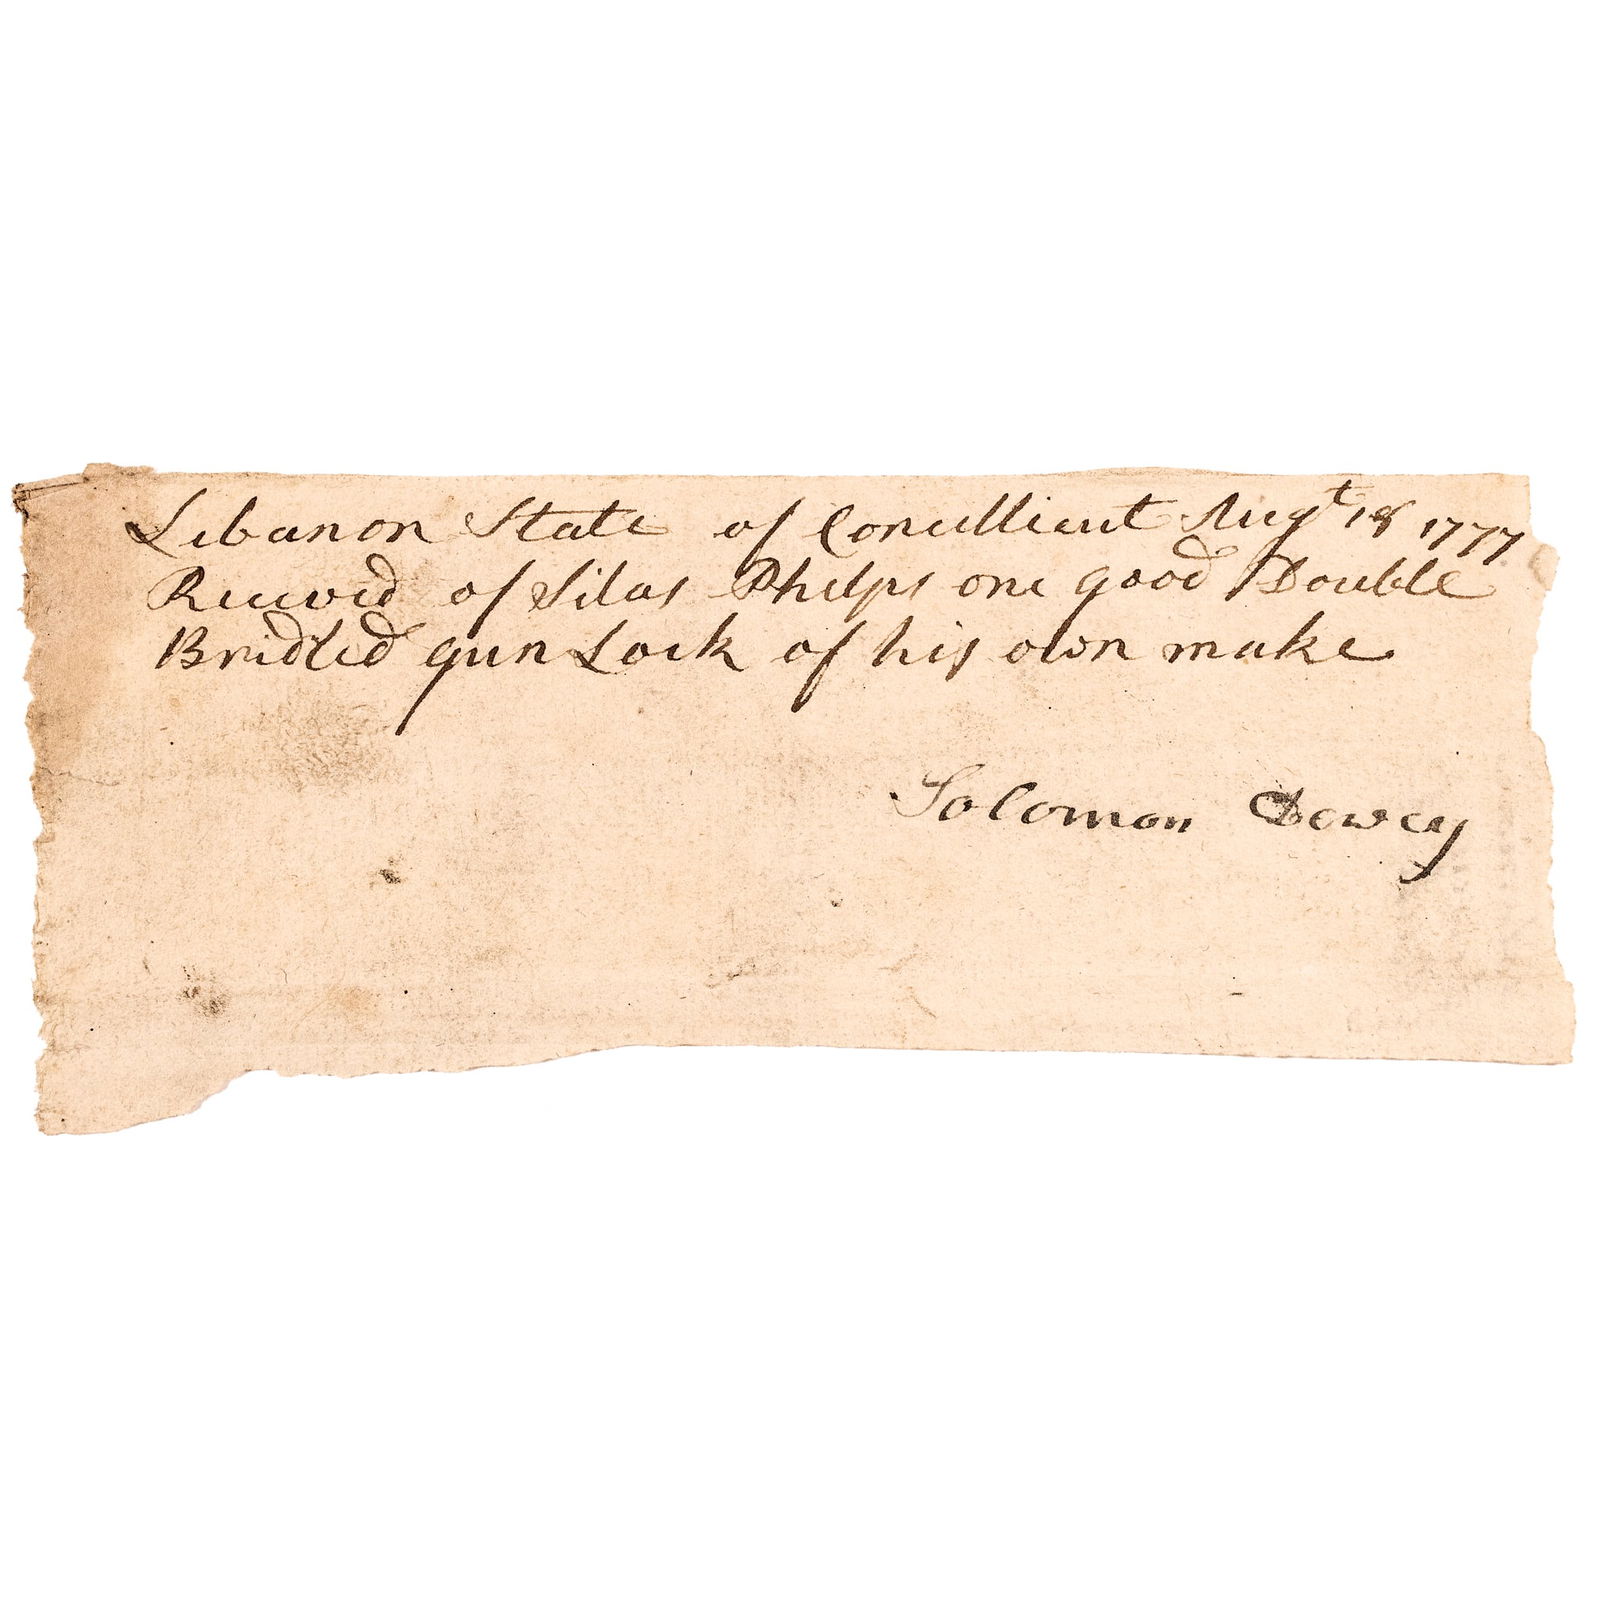 Lebanon State of Conetticut Augt 18 1777
Received of Silas Phelps one good Double
Bridled gun Lock of his own make
Solomon Dewey